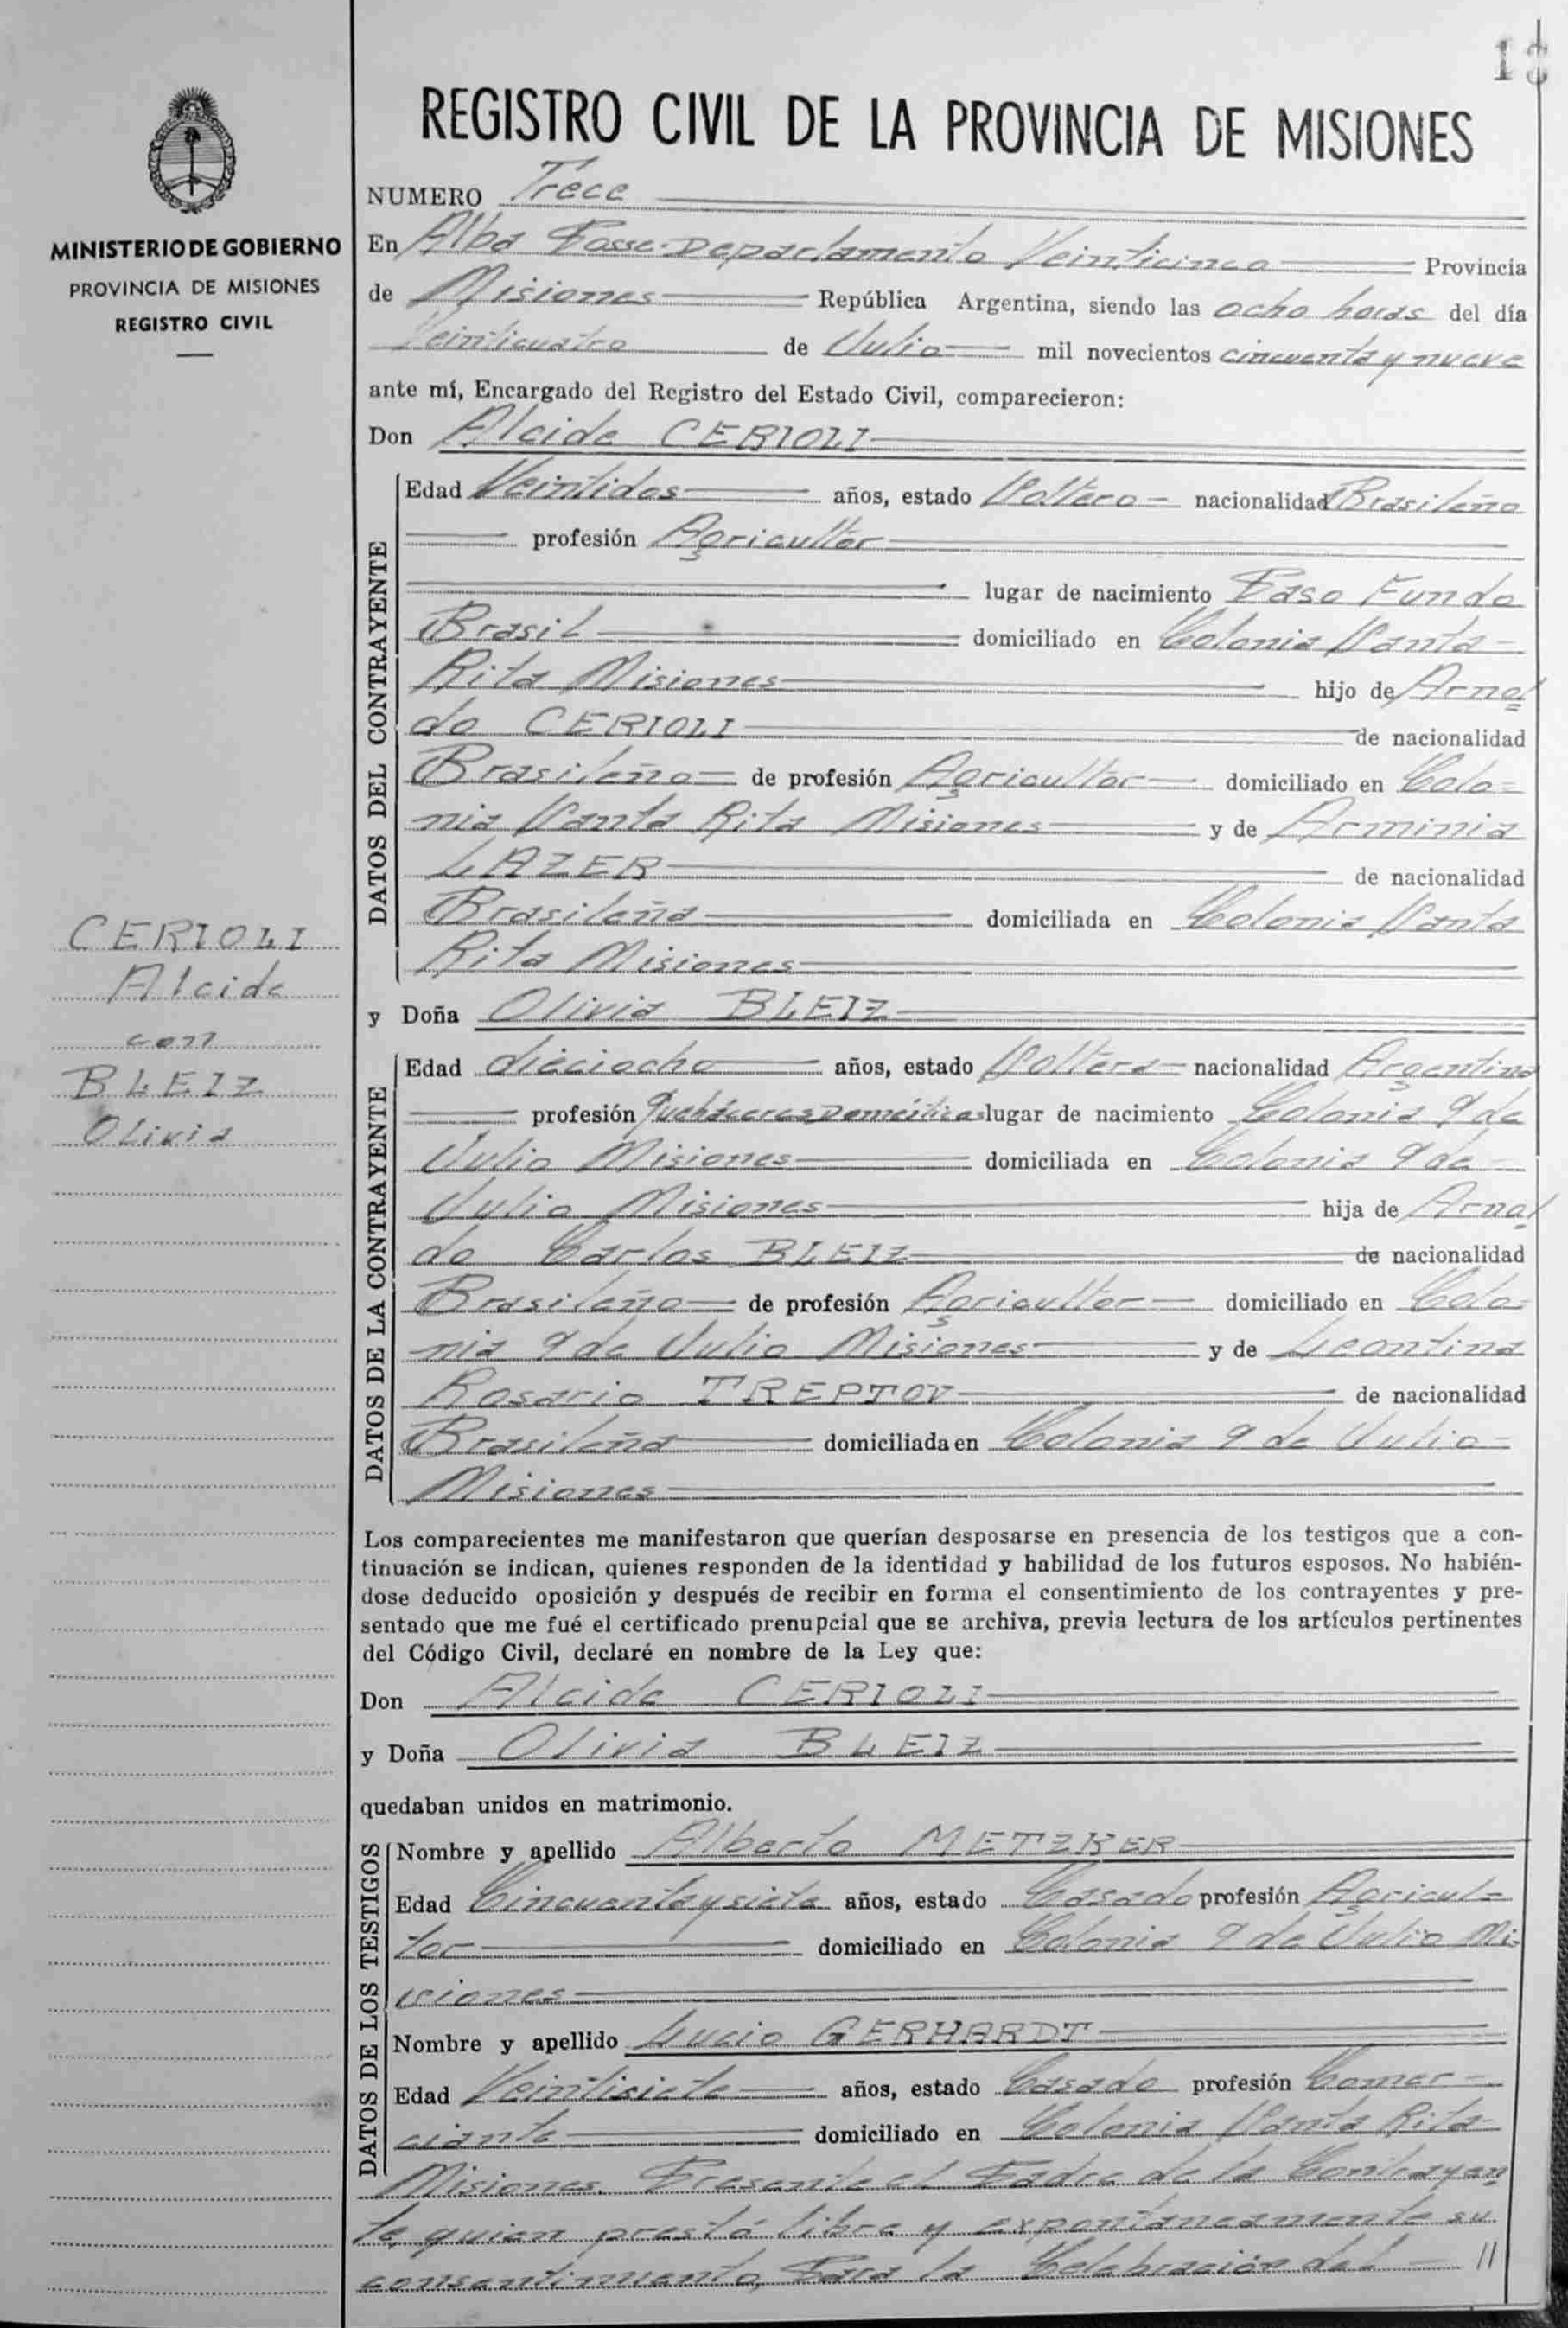 13
REGISTRO CIVIL DE LA PROVINCIA DE MISIONES
MINISTERIO DE GOBIERNO
PROVINCIA DE MISIONES
REGISTRO CIVIL
CERIOLI
Alcide
con
BLEIZ
Olivia
NUMERO Trece
En Alba Posse-Departamento Veinticinco Provincia
de Misiones República Argentina, siendo las ocho horas del día
Veinticuatro de Julio mil novecientos cincuenta y nueve
ante mí, Encargado del Registro del Estado Civil, comparecieron:
Don Alcide CERIOLI
DATOS DEL CONTRAYENTE
Edad Veintidos años, estado Soltero nacionalidad Brasileño
profesión Agricultor
lugar de nacimiento Paso Fundo
Brasil domiciliado en Colonia Santa
Rita Misiones hijo de Arnal
do CERIOLI de nacionalidad
Brasileño de profesión Agricultor domiciliado en Colo=
nia Santa Rita Misiones y de Arminia
LAZER de nacionalidad
Brasileña domiciliada en Colonia Santa
Rita Misiones
y Doña Olivia BLEIZ
DATOS DE LA CONTRAYENTE
Edad dieciocho años, estado Soltera nacionalidad Argentina
profesión Quehaceres Domésticos lugar de nacimiento Colonia 9 de
Julio Misiones domiciliada en Colonia 9 de
Julio Misiones hija de Arnal
do Carlos BLEIZ de nacionalidad
Brasileño de profesión Agricultor domiciliado en Colo-
nia 9 de Julio Misiones y de Leontina
Rosario TREPTOV de nacionalidad
Brasileña domiciliada en Colonia 9 de Julio
Misiones
Los comparecientes me manifestaron que querían desposarse en presencia de los testigos que a con-
tinuación se indican, quienes responden de la identidad y habilidad de los futuros esposos. No habién-
dose deducido oposición y después de recibir en forma el consentimiento de los contrayentes y pre-
sentado que me fué el certificado prenupcial que se archiva, previa lectura de los artículos pertinentes
del Código Civil, declaré en nombre de la Ley que:
Don Alcide CERIOLI
y Doña Olivia BLEIZ
quedaban unidos en matrimonio.
DATOS DE LOS TESTIGOS
Nombre y apellido Alberto METZKER
Edad Cincuenta y siete años, estado Casado profesión Agricul-
tor domiciliado en Colonia 9 de Julio Mi-
siones
Nombre y apellido Lucio GERHARDT
Edad Veintisiete años, estado Casado profesión Comer-
ciante domiciliado en Colonia Santa Rita
Misiones. Presente el Padre de la Contrayen
te, quien prestó libre y expontaneamente su
consentimiento, Para la Celebración del - //